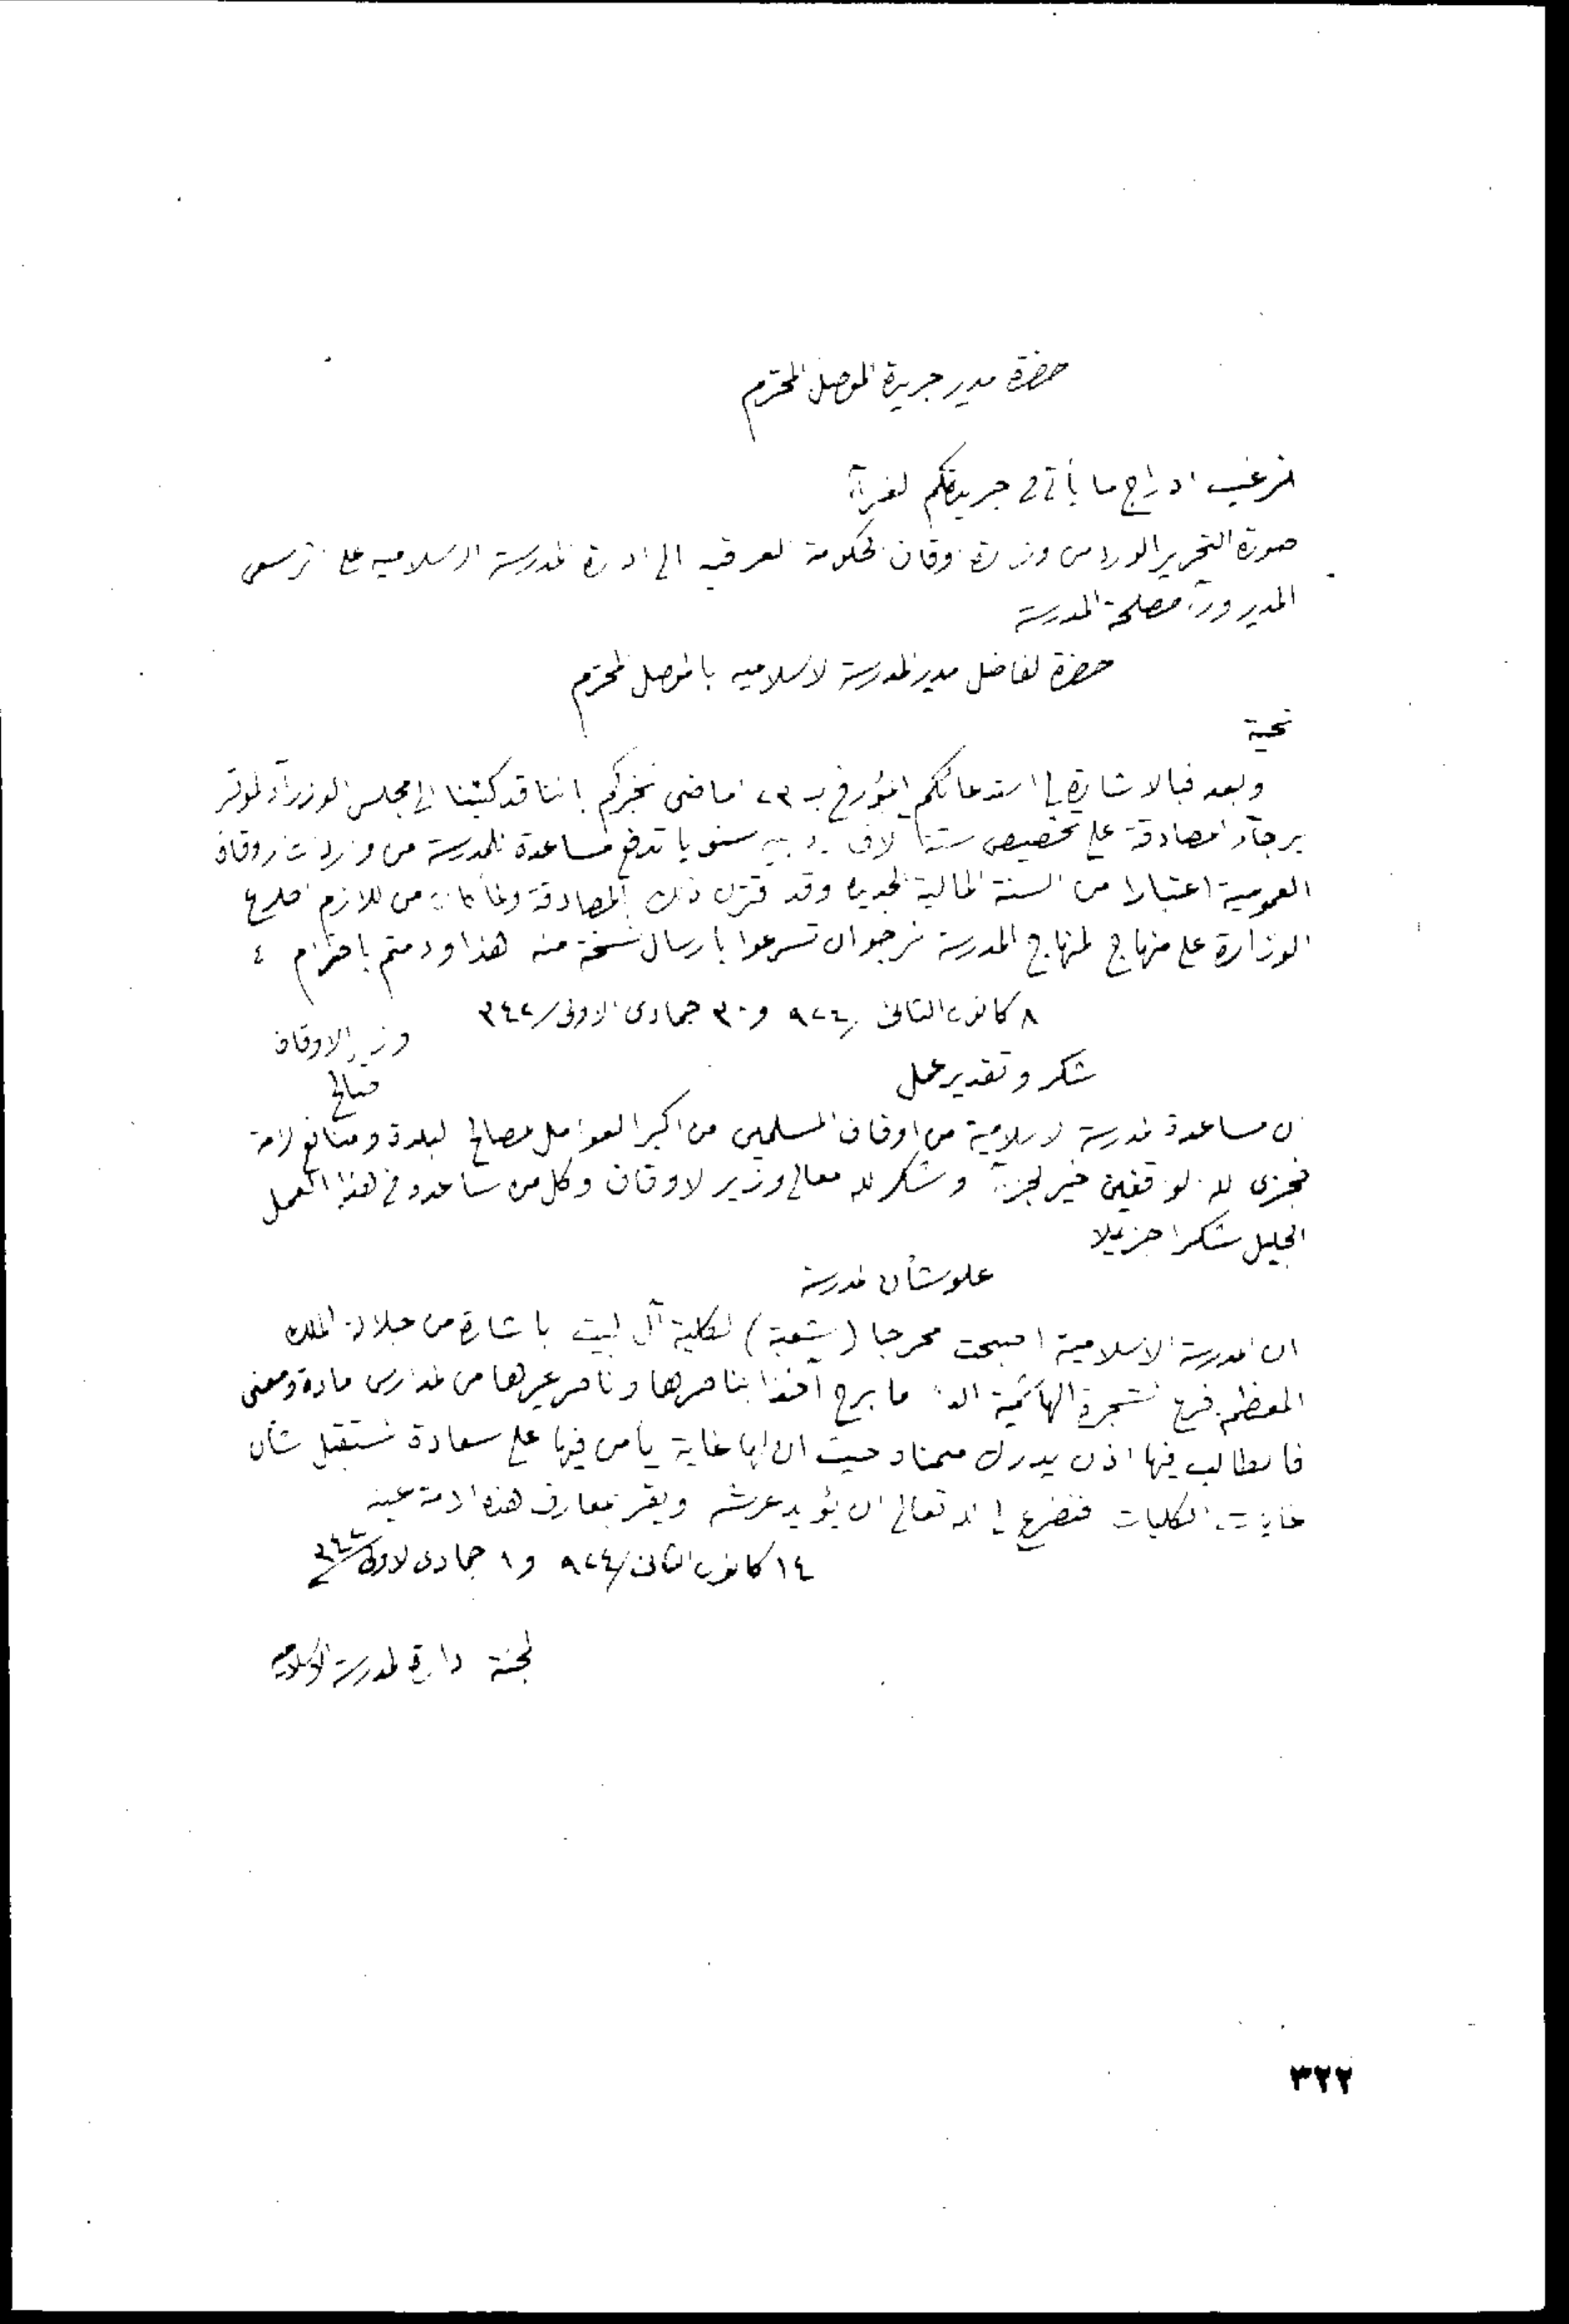 حضرة مدير جريدة الموصل المحترم
نرغب ادراج ما يأتي في جريدتكم الغراء
صورة التحرير الوارد من وزارة اوقاف الحكومة العراقية الى ادارة المدرسة الاسلامية على ترسعى
المدير وراء مصلحة المدرسة
حضرة الفاضل مدير المدرسة الاسلامية بالموصل المحترم
تحية
وبعد فبالاشارة الى استدعائكم المؤرخ بـ ٢٣ الماضي نخبركم باننا قد كتبنا الى مجلس الوزراء الموقر
برجاء المصادقة على تخصيص ستة آلاف ربية سنويا تدفع مساعدة للمدرسة من واردات الاوقاف
العمومية اعتبارا من السنة المالية الجديدة وقد قترن ذلك بالمصادقة ولما كان من اللازم اطلاع
الوزارة على منهاج لمنهاج المدرسة نرجو ان تسرعوا بارسال نسخة منه هذا ودمتم باحترام ٤
٨ كانون الثاني ٩٢٤ و ٣٠ جمادى الاولى ٣٤٢
وزير الاوقاف
صالح
شكر وتقدير عمل
ان مساعدة المدرسة الاسلامية من اوقاف المسلمين من اكبر العوامل لمصالح البلدة ومنافع الامة
فجزى الله الواقفين خير الجزاء وشكر الله معالي وزير الاوقاف وكل من ساعدوا في هذا العمل
الجليل شكرا جزيلا
علو شأن المدرسة
ان المدرسة الاسلامية اصبحت مخرجا (شعبة) لكلية آل البيت باشارة من جلالة الملك
المعظم فرع الشجرة الهاشمية الذي ما برح آخذا بناصرها وناصر غيرها من المدارس مادة ومعنى
فالطالب فيها اذن يدرك وحيث ان لها غاية يأمن فيها على سعادة مستقبل شأن
غايات الكليات فنضرع الى الله تعالى ان يؤيد عرشه ويقر بمعارف هذه الامة عينه
١٤ كانون الثاني ٩٢٤ و جمادى الاولى ٣٤٢
لجنة ادارة المدرسة الاسلامية
٣٢٢